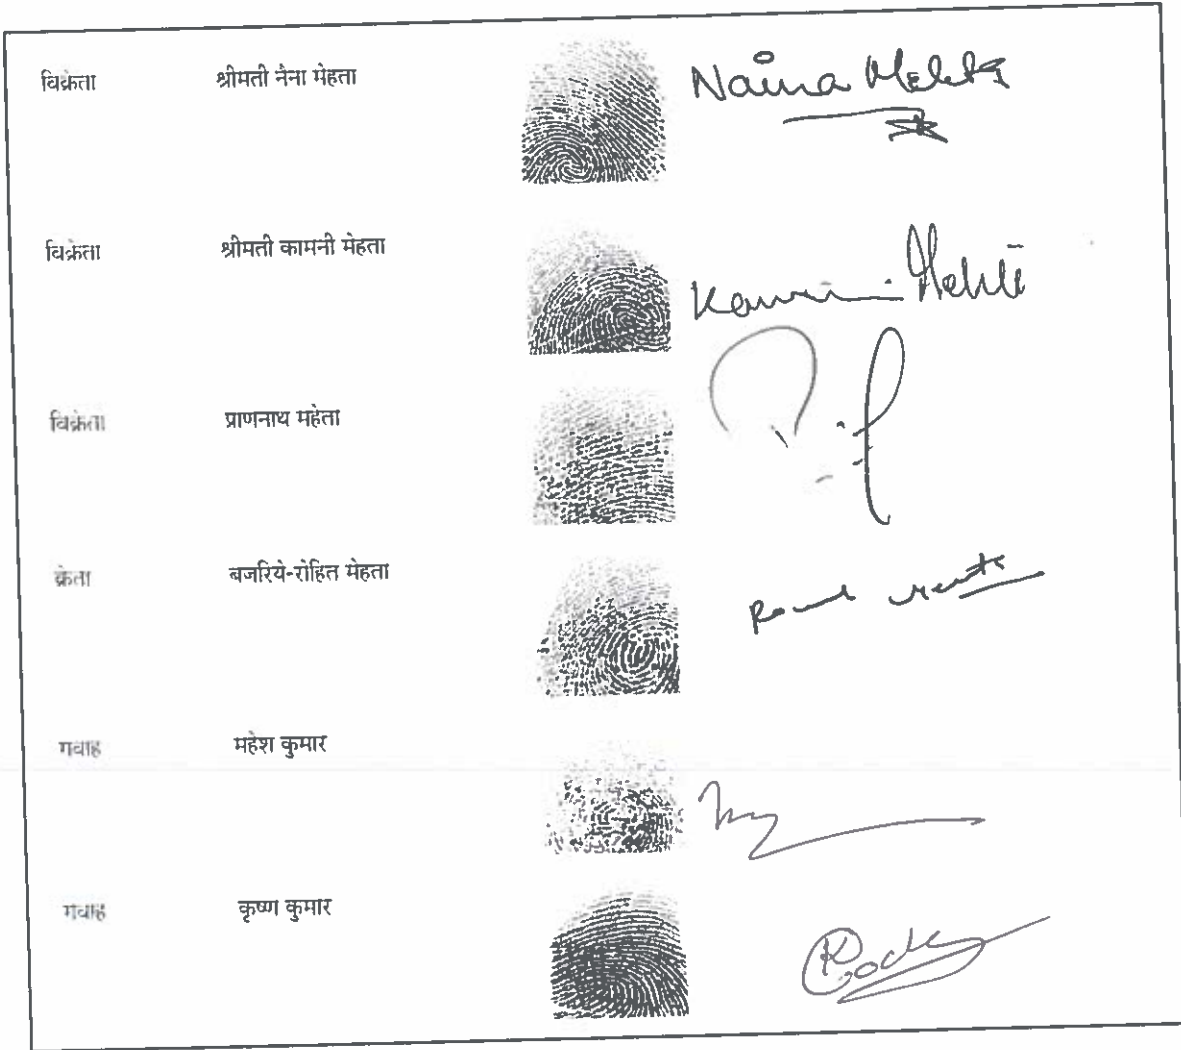 विक्रेता श्रीमती नैना मेहता Naina Mehta
विक्रेता श्रीमती कामनी मेहता Kamini Mehta
विक्रेता प्राणनाथ महेता
क्रेता बजरिये-रोहित मेहता
गवाह महेश कुमार
गवाह कृष्ण कुमार